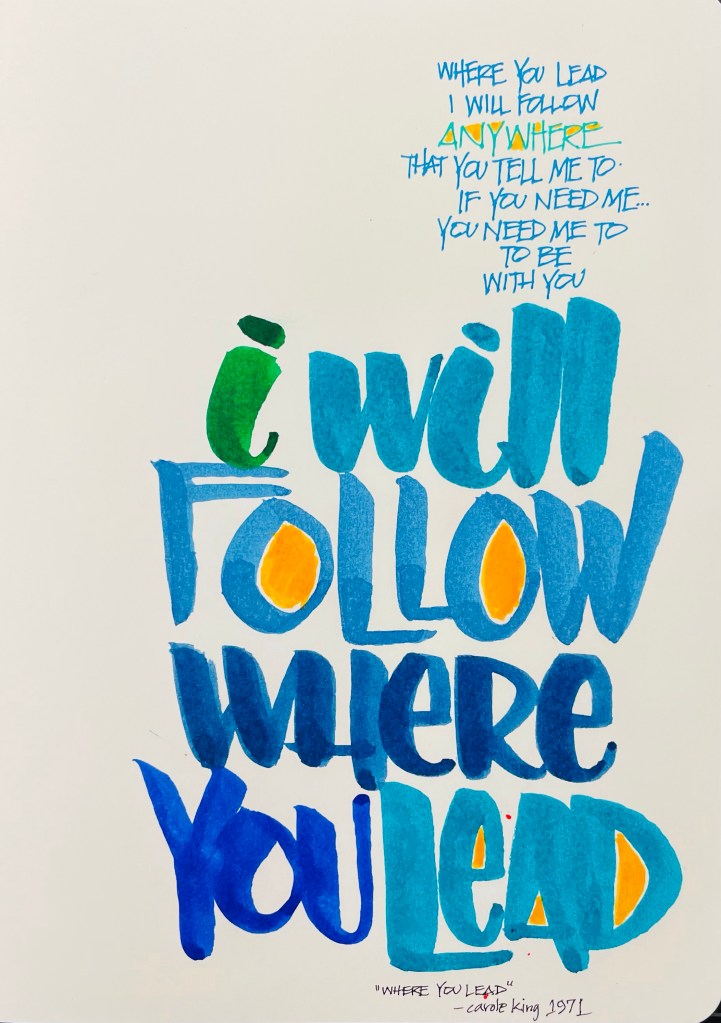 WHERE YOU LEAD
I WILL FOLLOW
ANYWHERE
THAT YOU TELL ME TO.
IF YOU NEED ME...
YOU NEED ME TO
TO BE
WITH YOU
i will
FOLLOW
WHeRe
YOU LeAD
"WHERE YOU LEAD"
– carole king 1971